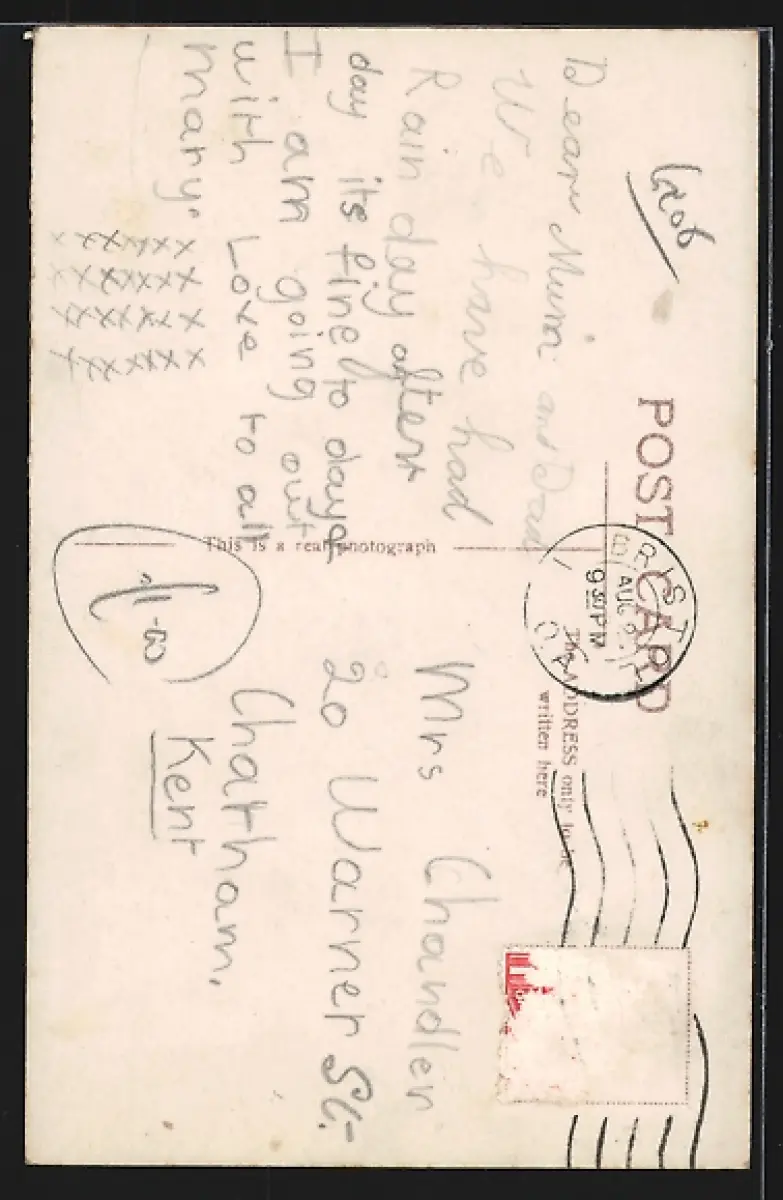 POST CARD
The ADDRESS only to be
written here
BRISTOL
9 30 PM
AUG
Dear Mum and Dad
We have had
Rain day after
day its fine to day
I am going out
with Love to all
Mary.
xxxxxx
xxxxxx
xxxxxx
xxxxxx
This is a real photograph
Mrs Chandler
20 Warner St.-
Chatham,
Kent